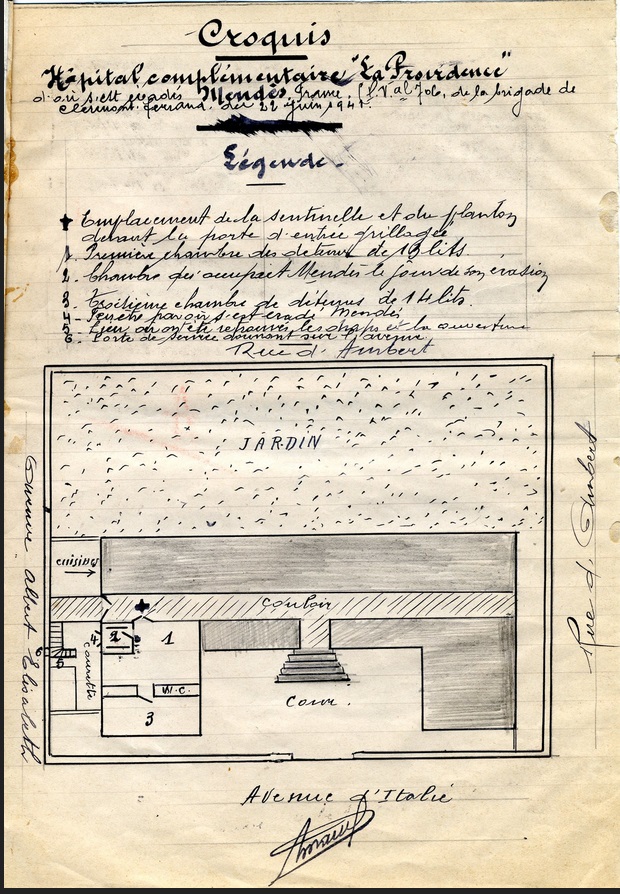 Croquis
Hôpital complémentaire "La Providence"
d'où s'est évadé Mendès France, de la brigade de
Clermont-Ferrand, du 22 Juin 1941.
Légende.
Emplacement de la sentinelle et du planton
devant la porte d'entrée grillagée
1. Première chambre des détenus de 19 lits.
2. Chambre qu'occupait Mendès le jour de son évasion
3. Troisième chambre de détenus de 14 lits.
4. Fenêtre par où s'est évadé Mendès
5. Lieu où ont été retrouvés les draps et la couverture
6. Porte de service donnant sur l'avenue
Rue d'Ambert
JARDIN
Avenue Albert Elisabeth
Rue d'Ambert
cuisines
Couloir
4
2
1
6
5
Courette
W.C.
3
Cour.
Avenue d'Italie